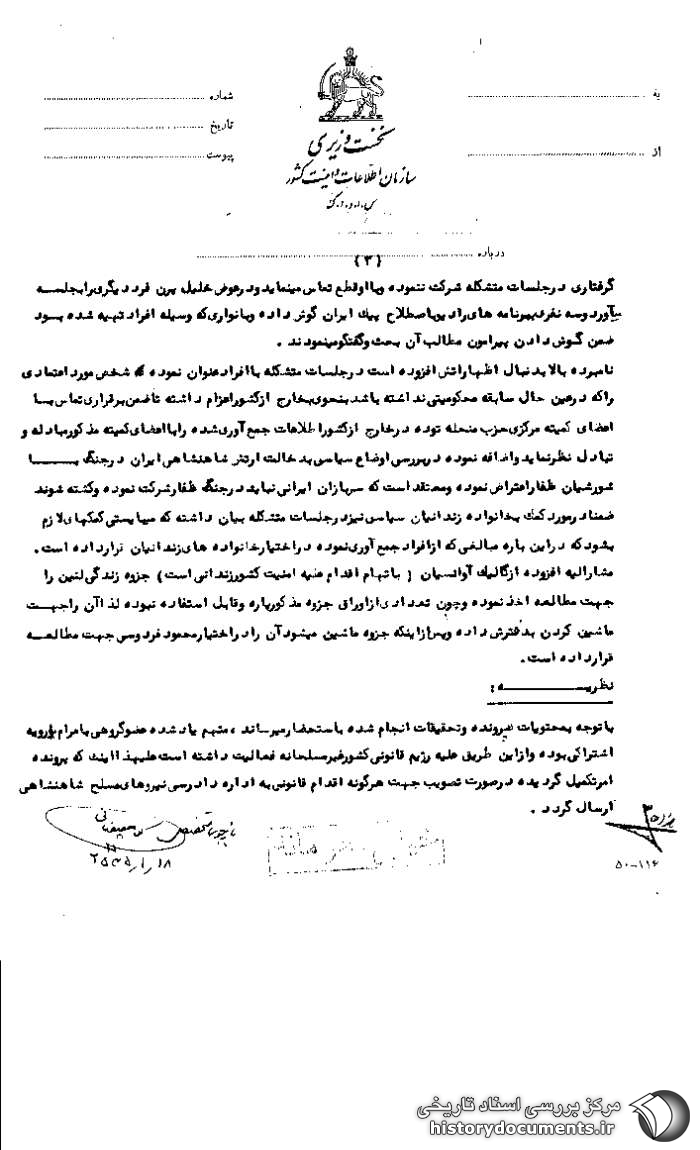 به
شماره
تاریخ
از
پیوست
نخست وزیری
سازمان اطلاعات و امنیت کشور
س.ا.و.ا.ک
درباره
(۳)
گرفتاری درجلسات متشکله شرکت ننموده وبااوقطع تماس مینمایدودرعوض خلیل بیرن فرددیگری رابجلسه
میآوردوسه نفری ببرنامه های رادیوباصطلاح پیک ایران گوش داده وبانواری که وسیله افراد تهیه شده بود
ضمن گوش دادن پیرامون مطالب آن بحث وگفتگومینمودند .
نامبرده بالا بدنبال اظهاراتش افزوده است درجلسات متشکله باافرادعنوان نموده که شخص مورداعتمادی
راکه درعین حال سابقه محکومیتی نداشته باشدبنحوی بخارج ازکشوراعزام داشته تاضمن برقراری تماس بـا
اعضای کمیته مرکزی حزب منحله توده درخارج ازکشوراطلاعات جمع آوری شده راباعضای کمیته مذکورمبادله و
تبادل نظرنماید واضافه نموده دربررسی اوضاع سیاسی بدخالت ارتش شاهنشاهی ایران درجنگ بـــــا
شورشیان ظفاراعتراض نموده ومعتقداست که سربازان ایرانی نبایددرجنگ ظفارشرکت نموده وکشته شوند
ضمنادرمورد کمک بخانواده زندانیان سیاسی نیزدرجلسات متشکله بیان داشته که میبایستی کمکهای لازم
بشودکه دراین باره مبالغی که ازافراد جمع آوری نموده دراختیارخانواده های زندانیان قرارداده است .
مشارالیه افزوده ازگالیک آوانسیان ( باتهام اقدام علیه امنیت کشورزندانی است ) جزوه زندگی لنین را
جهت مطالعه اخذ نموده وچون تعدادی ازاوراق جزوه مذکورپاره وقابل استفاده نبوده لذاآن راجهـت
ماشین کردن بدخترش داده وپس ازاینکه جزوه ماشین میشودآن رادراختیارمحمود فردوسی جهت مطالعـه
قرارداده است .
نظریـــــــــــــه :
باتوجه بمحتویات پرونده وتحقیقات انجام شده باستحضارمیرساند ، متهم یاد شده عضوگروهی بامرام ورویه
اشتراکی بوده وازاین طریق علیه رژیم قانونی کشورغیرمسلحانه فعالیت داشته است علیهذا اینک که پرونده
امرتکمیل گردیده درصورت تصویب جهت هرگونه اقدام قانونی به اداره دادرسی نیروهای مسلح شاهنشاهی
ارسال گردد .
۲۵۳۵/۱/۱۸
۵۰-۱۱۶
مرکز بررسی اسناد تاریخی
historydocuments.ir